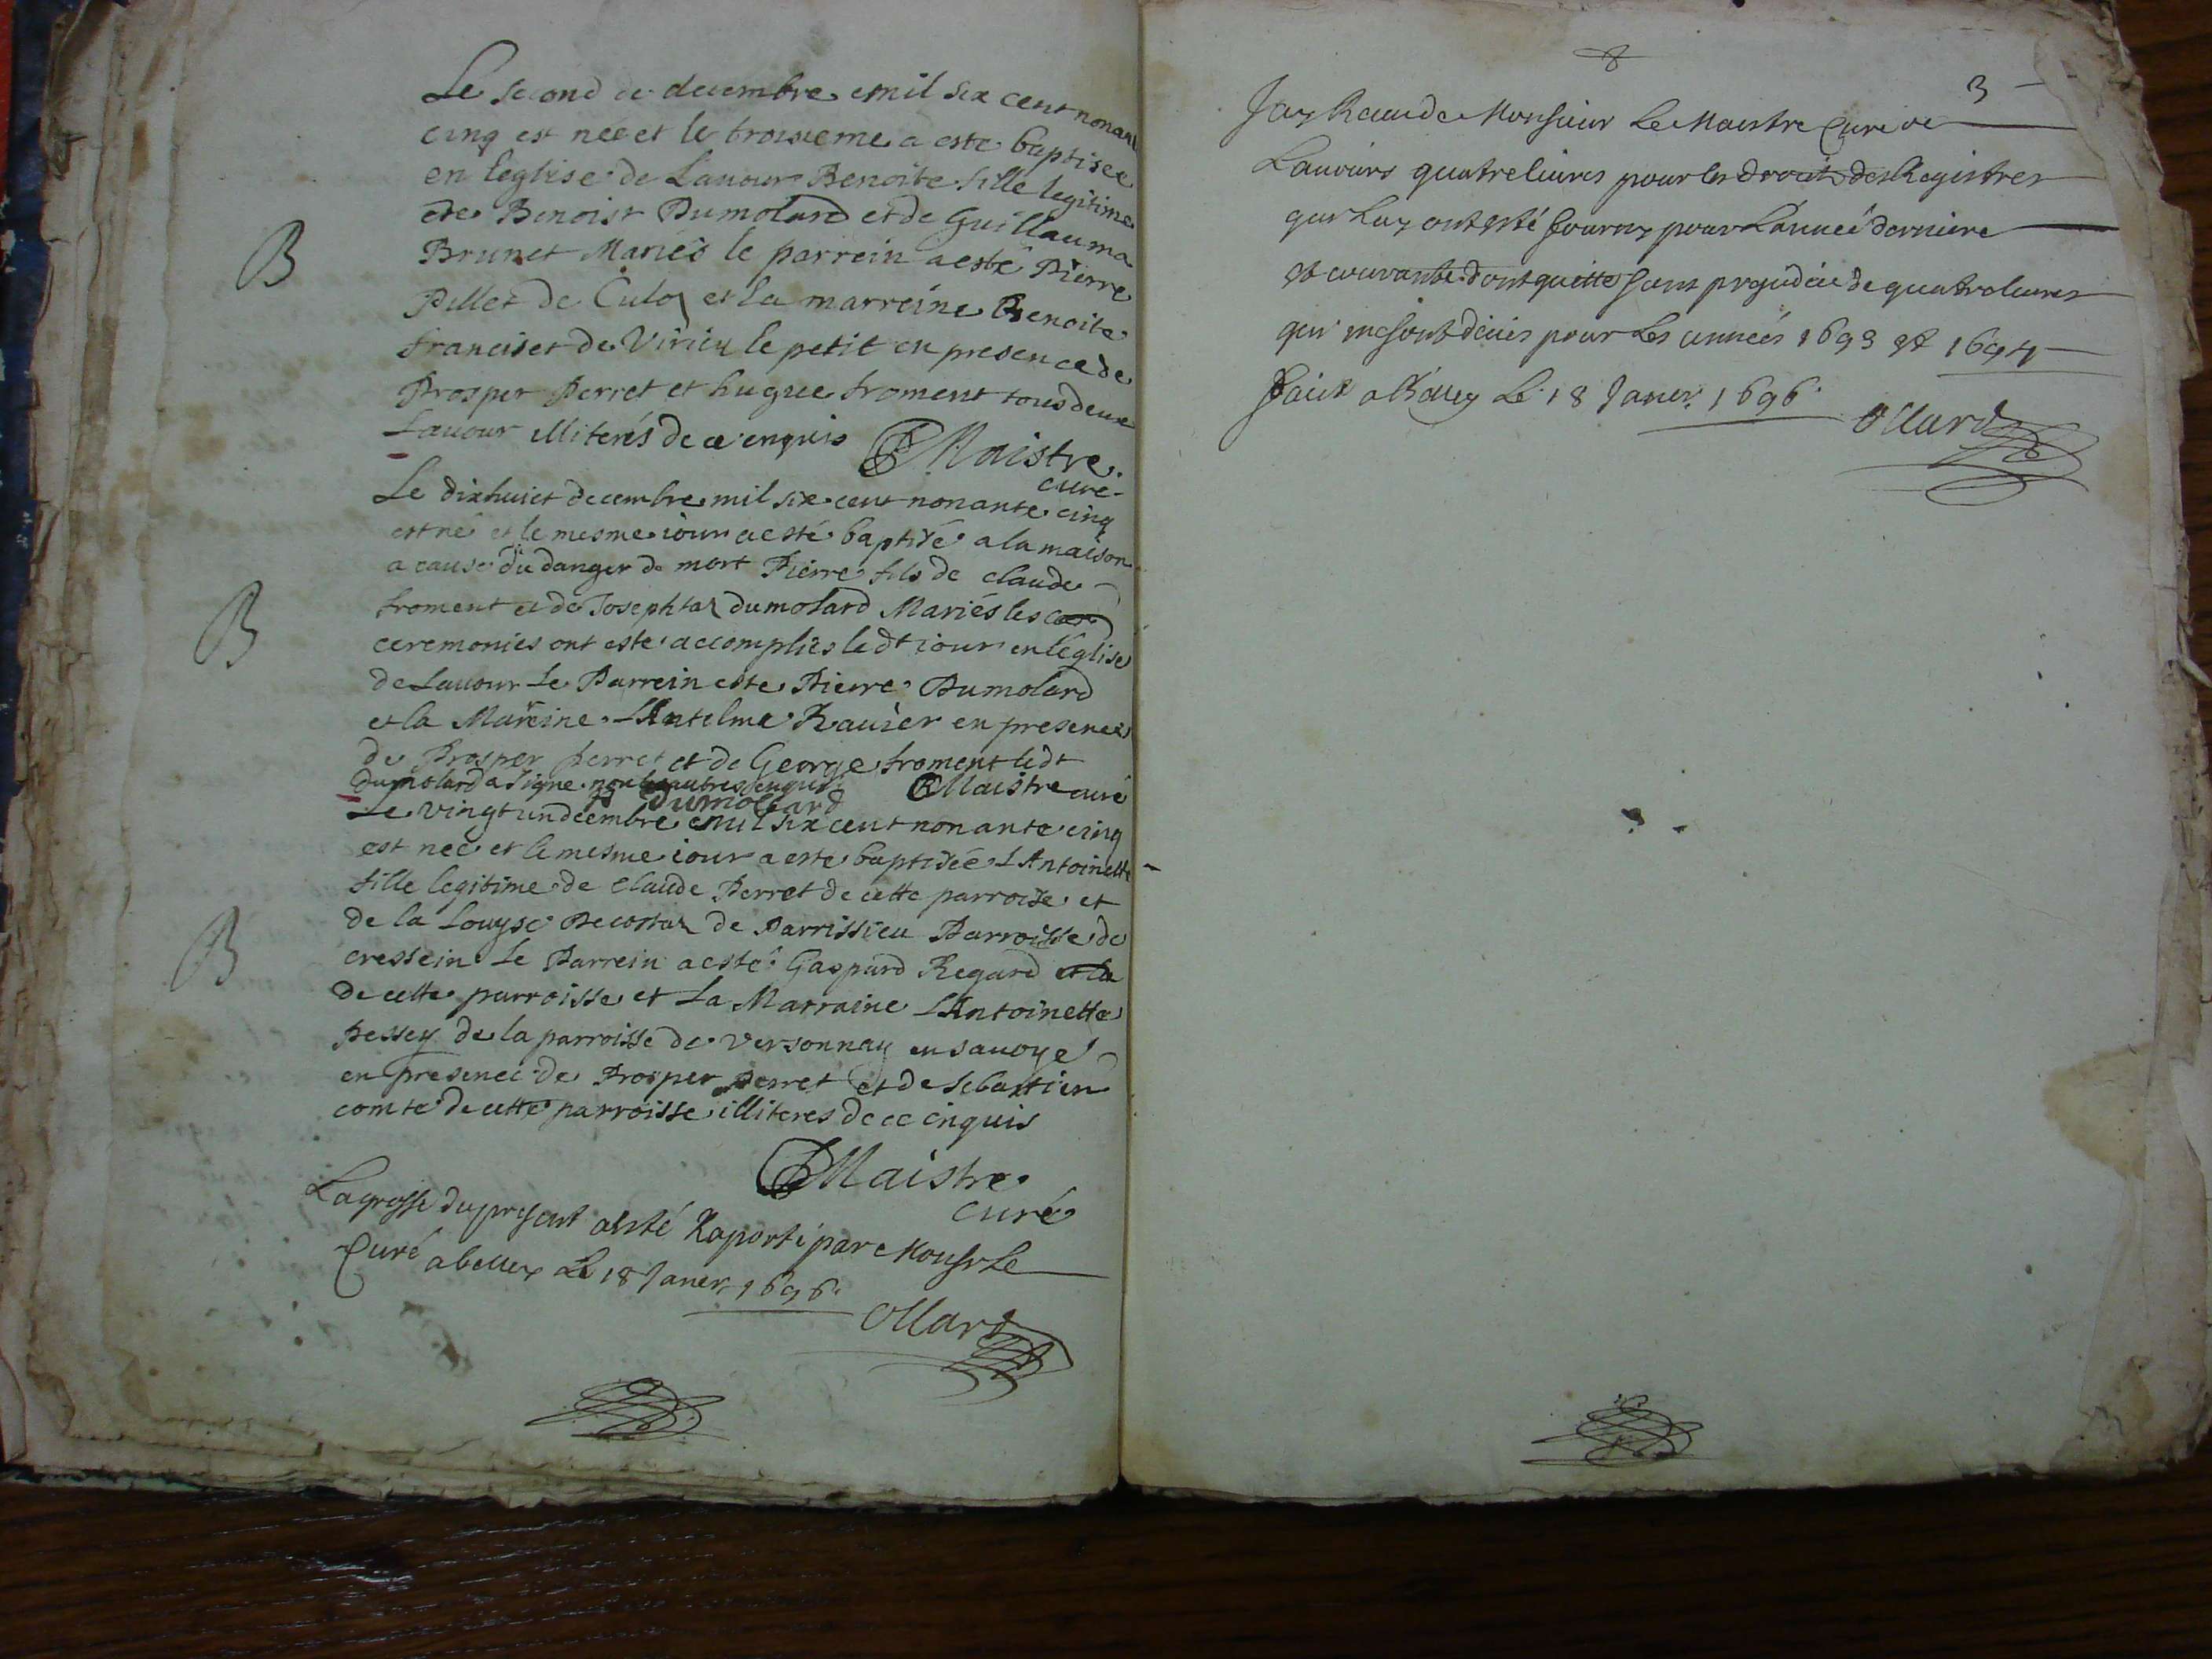 Le second de decembre mil six cent nonante
cinq est née et le troisieme a esté baptisée
en l'eglise de Lavour Benoite fille legitime
de Benoist Dumolard et de Guillauma
B
Brunet Mariés le parrein a esté Pierre
Pillet de Culoz et la marreine Benoite
franciset de Virieu le petit en presence de
Prosper Perret et hugue froment tous deux
Lavour illiterés de ce enquis Maistre
curé
Le dixhuict decembre mil six cent nonante cinq
est né et le mesme iour a esté baptisé a la maison
a cause du danger de mort Pierre fils de claude
froment et de Josephtaz dumolard Mariés les
B
ceremonies ont esté accomplies ledt iour en l'église
de Lavour Le Parrein este Pierre Dumolard
et la Mareine L'Antelma Ravier en presence
de Prosper perret et de George froment ledt
dumolard a signe non les autres enquis Maistre curé
P Dumollard
Le vingt un decembre mil six cent nonante cinq
est neé et le mesme iour a esté baptisée L'Antoinette
fille legitime de claude Perret de cette parroisse et
de la Louyse Decostaz de Parrissieu Parroisse de
B
cressein Le Parrein a esté Gaspard Regard et la
de cette parroisse et La Marraine L'Antoinette
pessey de la parroisse de versonnay en savoye
en presence de Prosper perret et de sebastien
comte de cette parroisse illiteres de ce enquis
Maistre
curé
La grosse du present a esté Raporté par Monsr Le
Curé a belley Le 18 Janer 1696
Ollard
3
Jay Receu de Monsieur Le Maistre Curé de
Lavours quatre livres pour les droits des Registres
qui Luy ont esté fourny pour L'année derniere
et courante dont quitte sans prejudice de quatre livres
qui me sont deües pour Les années 1693 et 1694
Faict a Belley Le 18 Janer 1696
Ollard